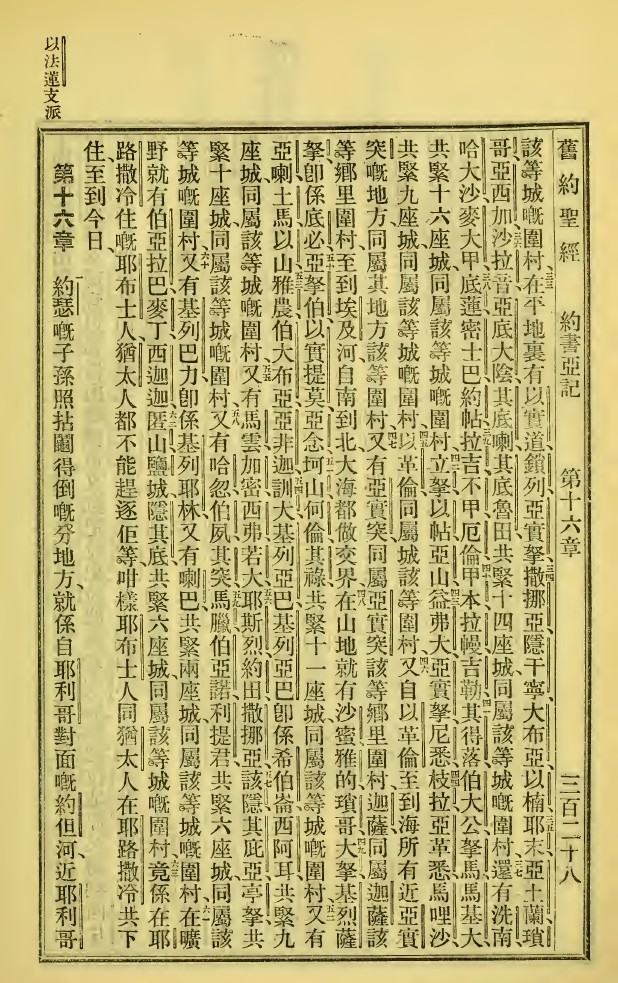 舊約聖經 約書亞記 第十六章 三百二十八
該等城嘅圍村、三三在平地裏有以實道鎖列亞實拏、三四撒挪亞隱干寧大布亞以楠耶末亞土蘭瑣
哥亞西加沙拉音亞底大陰其底喇其底魯田共緊十四座城、同屬該等城嘅圍村、還有洗南
哈大沙麥大甲底蓮密士巴約帖拉吉不甲厄倫甲本拉幔吉勒其得落伯大公拏馬馬基大
共緊十六座城、同屬該等城嘅圍村、立拏以帖亞山益弗大亞實拏尼悉枝拉亞革悉馬哩沙
共緊九座城、同屬該等城嘅圍村、以革倫同屬城該等圍村、又自以革倫至到海所有近亞實
突嘅地方、同屬其地方該等圍村、又有亞實突同屬亞實突該等鄉里圍村、迦薩同屬迦薩該
等鄉里圍村、至到埃及河、自南到北大海都做交界、在山地就有沙蜜雅的瑣哥大拏基烈薩
拏卽係底必亞拏伯以實提莫亞念坷山何倫其祿共緊十一座城、同屬該等城嘅圍村、又有
亞喇土馬以山雅農伯大布亞亞非迦訓大基列亞巴基列亞巴卽係希伯崙西阿耳共緊九
座城、同屬該等城嘅圍村、又有馬雲加密西弗若大耶斯烈約田撒挪亞該隱其庇亞亭拏共
緊十座城、同屬該等城嘅圍村、又有哈忽伯夙其突馬臘伯亞諾利提君共緊六座城、同屬該
等城嘅圍村、又有基列巴力卽係基列耶林、又有喇巴共緊兩座城、同屬該等城嘅圍村、在曠
野就有伯亞拉巴麥丁西迦迦匿山鹽城隱其底共緊六座城、同屬該等城嘅圍村、竟係在耶
路撒冷住嘅耶布士人、猶太人都不能趕逐佢等、咁樣耶布士人同猶太人在耶路撒冷共下
住至到今日、
第十六章 約瑟嘅子孫照拈鬮得倒嘅分地方、就係自耶利哥對面嘅約但河、近耶利哥
以法蓮支派